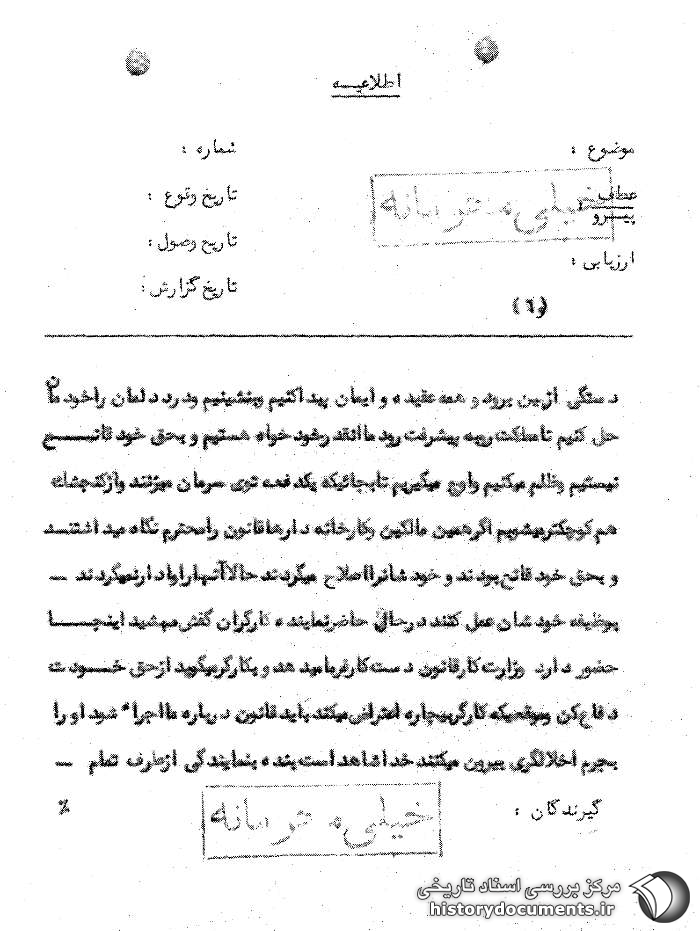 اطلاعیـــه
موضوع :
شماره :
عطف
پیــرو :
تاریخ وقوع :
خیلی محرمانه
تاریخ وصول :
ارزیابی :
تاریخ گزارش :
(٦)
دستگی ازبین برود و همه عقیده و ایمان پیداکنیم وبنشینیم ودرد دلمان راخودمان
حل کنیم تامملکت روبه پیشرفت رود ماانقدرخودخواه هستیم و بحق خود قانـــع
نیستیم وظلم میکنیم واوج میگیریم تابجائیکه یکدفعه توی سرمان میزنند وازگنجشك
هم کوچکترمیشویم اگرهمین مالکین وکارخانه دارهاقانون رامحترم نگاه میداشتنــد
و بحق خود قانع بودند و خودشانرااصلاح میکردند حالاآنهاراوادارنمیکردند —
بوظیفه خودشان عمل کنند درحالی حاضرنماینده کارگران کفش میشید اینجـــا
حضور دارد وزارت کارقانون دست کارفرمامیدهد و بکارگرمیگوید ازحق خـــودت
دفاع کن وموقعیکه کارگربیچاره اعتراض میکند باید قانون درباره مااجراء شود او را
بجرم اخلالگری بیرون میکنند خداشاهداست بنده بنمایندگی ازطرف تمام —
گیرندگان :
٪
خیلی محرمانه
مرکز بررسی اسناد تاریخی
historydocuments.ir